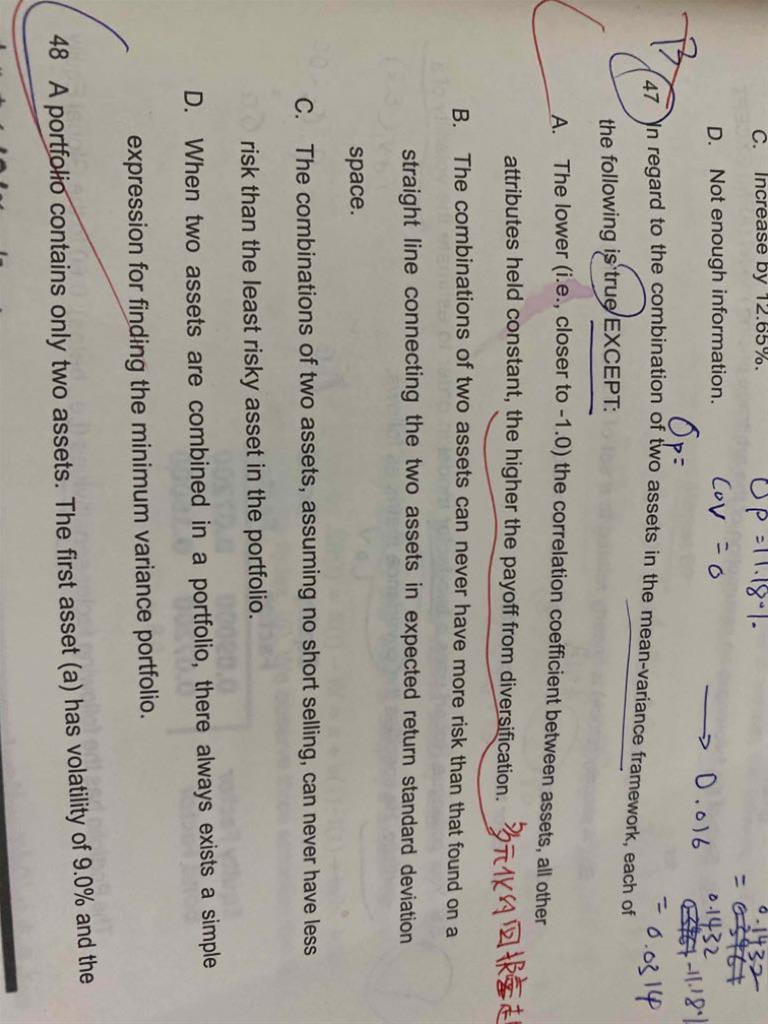 C. Increase by 12.65%.
D. Not enough information.
σp = 11.18%.
Cov = 0 → 0.016
= 0.1432
0.1432 - 11.18%
= 0.0314
B
σp =
47 In regard to the combination of two assets in the mean-variance framework, each of
the following is true EXCEPT:
A. The lower (i.e., closer to -1.0) the correlation coefficient between assets, all other
attributes held constant, the higher the payoff from diversification.
B. The combinations of two assets can never have more risk than that found on a
straight line connecting the two assets in expected return standard deviation
space.
C. The combinations of two assets, assuming no short selling, can never have less
risk than the least risky asset in the portfolio.
D. When two assets are combined in a portfolio, there always exists a simple
expression for finding the minimum variance portfolio.
48 A portfolio contains only two assets. The first asset (a) has volatility of 9.0% and the